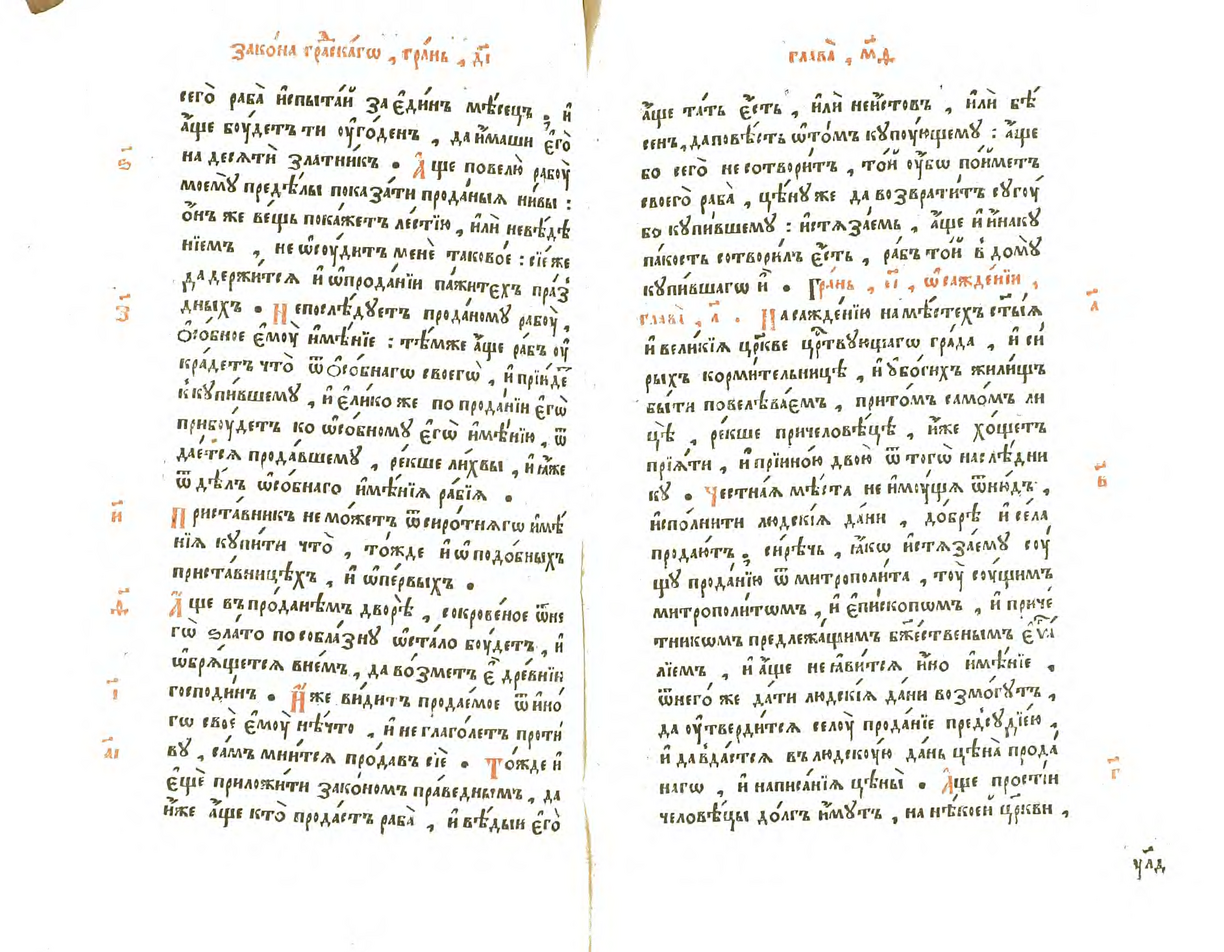 Зако́на гра́дскагѡ , гра́нь , д҃і
сего̀ раба̀ и҆спыта́й за є҆ди́нъ мѣ́сецъ , и҆
а҆́ще бꙋ́детъ ти ᲂу҆го́денъ , да и҆́маши є҆го̀
ѕ҃
на десѧти́ златникъ . А҆́ще повелю̀ рабꙋ̀
моемꙋ̀ предѣ́лы показа́ти прода́ныѧ ни́вы :
ѻ҆́нъ же вещь пока́жетъ ле́стїю , и҆лѝ невѣ́дѣ
нїемъ , не ѡ҆сꙋ́дитъ менѐ таково́е : сїе́ же
да держи́тсѧ и҆ ѡ҆прода́нїи па́житехъ пра́з
з҃
дныхъ . Непослѣ́дꙋетъ прода́номꙋ рабꙋ̀ ,
ѻ҆со́бное є҆мꙋ̀ и҆мѣ́нїе : тѣ́мже а҆́ще ра́бъ ᲂу҆
кра́детъ что̀ ѿ ѻ҆со́бнагѡ своегѡ̀ , и҆ прїи́де
к̾ кꙋпи́вшемꙋ , и҆ є҆ли́ко же по прода́нїи є҆гѡ̀
прибꙋ́детъ ко ѡ҆со́бномꙋ є҆гѡ̀ и҆мѣ́нїю , ѿ
дае́тсѧ прода́вшемꙋ , ре́кше ли́хвы , и҆ ꙗ҆́же
ѿ дѣ́лъ ѡ҆со́бнаго и҆мѣ́нїѧ ра́бїѧ .
и҃
Приста́вникъ не мо́жетъ ѿ сиро́тнѧгѡ и҆мѣ́
нїѧ кꙋпи́ти что̀ , то́жде и҆ ѡ҆ подо́бныхъ
приста́вницѣхъ , и҆ ѡ҆пе́рвыхъ .
ѳ҃
А҆́ще в̾ про́данѣмъ дворѣ̀ , сокрове́ное ѿ не
гѡ̀ ѕла́то по собла́знꙋ ѡ҆ста́ло бꙋ́детъ , и҆
ѡ҆брѧ́щетсѧ в̾не́мъ , да во́зметъ є҆̀ дре́внїи
і҃
господи́нъ . И҆́же ви́дитъ продае́мое ѿ и҆но
гѡ своѐ є҆мꙋ̀ нѣ́что , и҆ не глаго́летъ проти
а҃і
вꙋ , са́мъ мни́тсѧ прода́въ сїѐ . То́жде и҆
є҆щѐ приложи́ти зако́номъ пра́веднымъ , да
и҆́же а҆́ще кто̀ прода́стъ раба̀ , и҆ вѣ́дыи є҆го̀
глава̀ , м҃ѳ
а҆́ще та́ть є҆́сть , и҆лѝ неи́стовъ , и҆лѝ бѣ́
сенъ , да повѣ́сть ѡ҆ то́мъ кꙋпꙋ́ющемꙋ : а҆́ще
бо сего̀ не сотвори́тъ , то́й ᲂу҆́бѡ по́йметъ
своего̀ раба̀ , цѣ́нꙋ же да возврати́тъ сꙋгꙋ́
бо кꙋпи́вшемꙋ : и҆стѧза́емь , а҆́ще и҆ и҆́накꙋ
па́кость сотвори́лъ є҆́сть , ра́бъ то́й в̾ домꙋ̀
кꙋпи́вшагѡ и҆̀ . Гра́нь , є҃і , ѡ҆ сажде́нїи ,
а҃
глава̀ , л҃ . Насажде́нїю на мѣ́стехъ ст҃ы́ѧ
и҆ вели́кїѧ цр҃кве црⷭ҇твꙋющагѡ гра́да , и҆ си
рыхъ корми́тельницѣ , и҆ ᲂу҆бо́гихъ жили́щъ
бы́ти повелѣва́емъ , при то́мъ само́мъ ли
цѣ̀ , ре́кше при человѣ́цѣ , и҆́же хо́щетъ
прїѧ́ти , и҆ прї и҆но́ю двою̀ ѿ тогѡ̀ наслѣ́дни
в҃
кꙋ . Честна́ѧ мѣ́ста не и҆мꙋ́щїѧ ѿню́дъ ,
и҆спо́лнити людскі́ѧ да́ни , до́брѣ и҆ се́ла
продаю́тъ , си́рѣчь , ꙗ҆́кѡ и҆стѧза́емꙋ сꙋ́
щꙋ прода́нїю ѿ митрополи́та , тꙋ̀ сꙋ́щимъ
митрополи́тѡмъ , и҆ є҆пи́скопѡмъ , и҆ приче́
тникѡмъ предлежа́щимъ бж҃е́ственымъ є҆ѵⷢ҇а
лїемъ , и҆ а҆́ще не ꙗ҆ви́тсѧ и҆́но и҆мѣ́нїе ,
ѿ него́ же да́ти людскі́ѧ да́ни возмо́гꙋтъ ,
да ᲂу҆тверди́тсѧ селꙋ̀ прода́нїе пред̾ сꙋдїе́ю ,
и҆ да в̾да́стсѧ в̾ людскꙋ́ю да́нь цѣна̀ прода́
г҃
нагѡ , и҆ написа́нїѧ цѣны̀ . А҆́ще прості́и
человѣ́цы до́лгъ и҆́мꙋтъ , на нѣ́коей цр҃кви ,
ꙋ҃лд